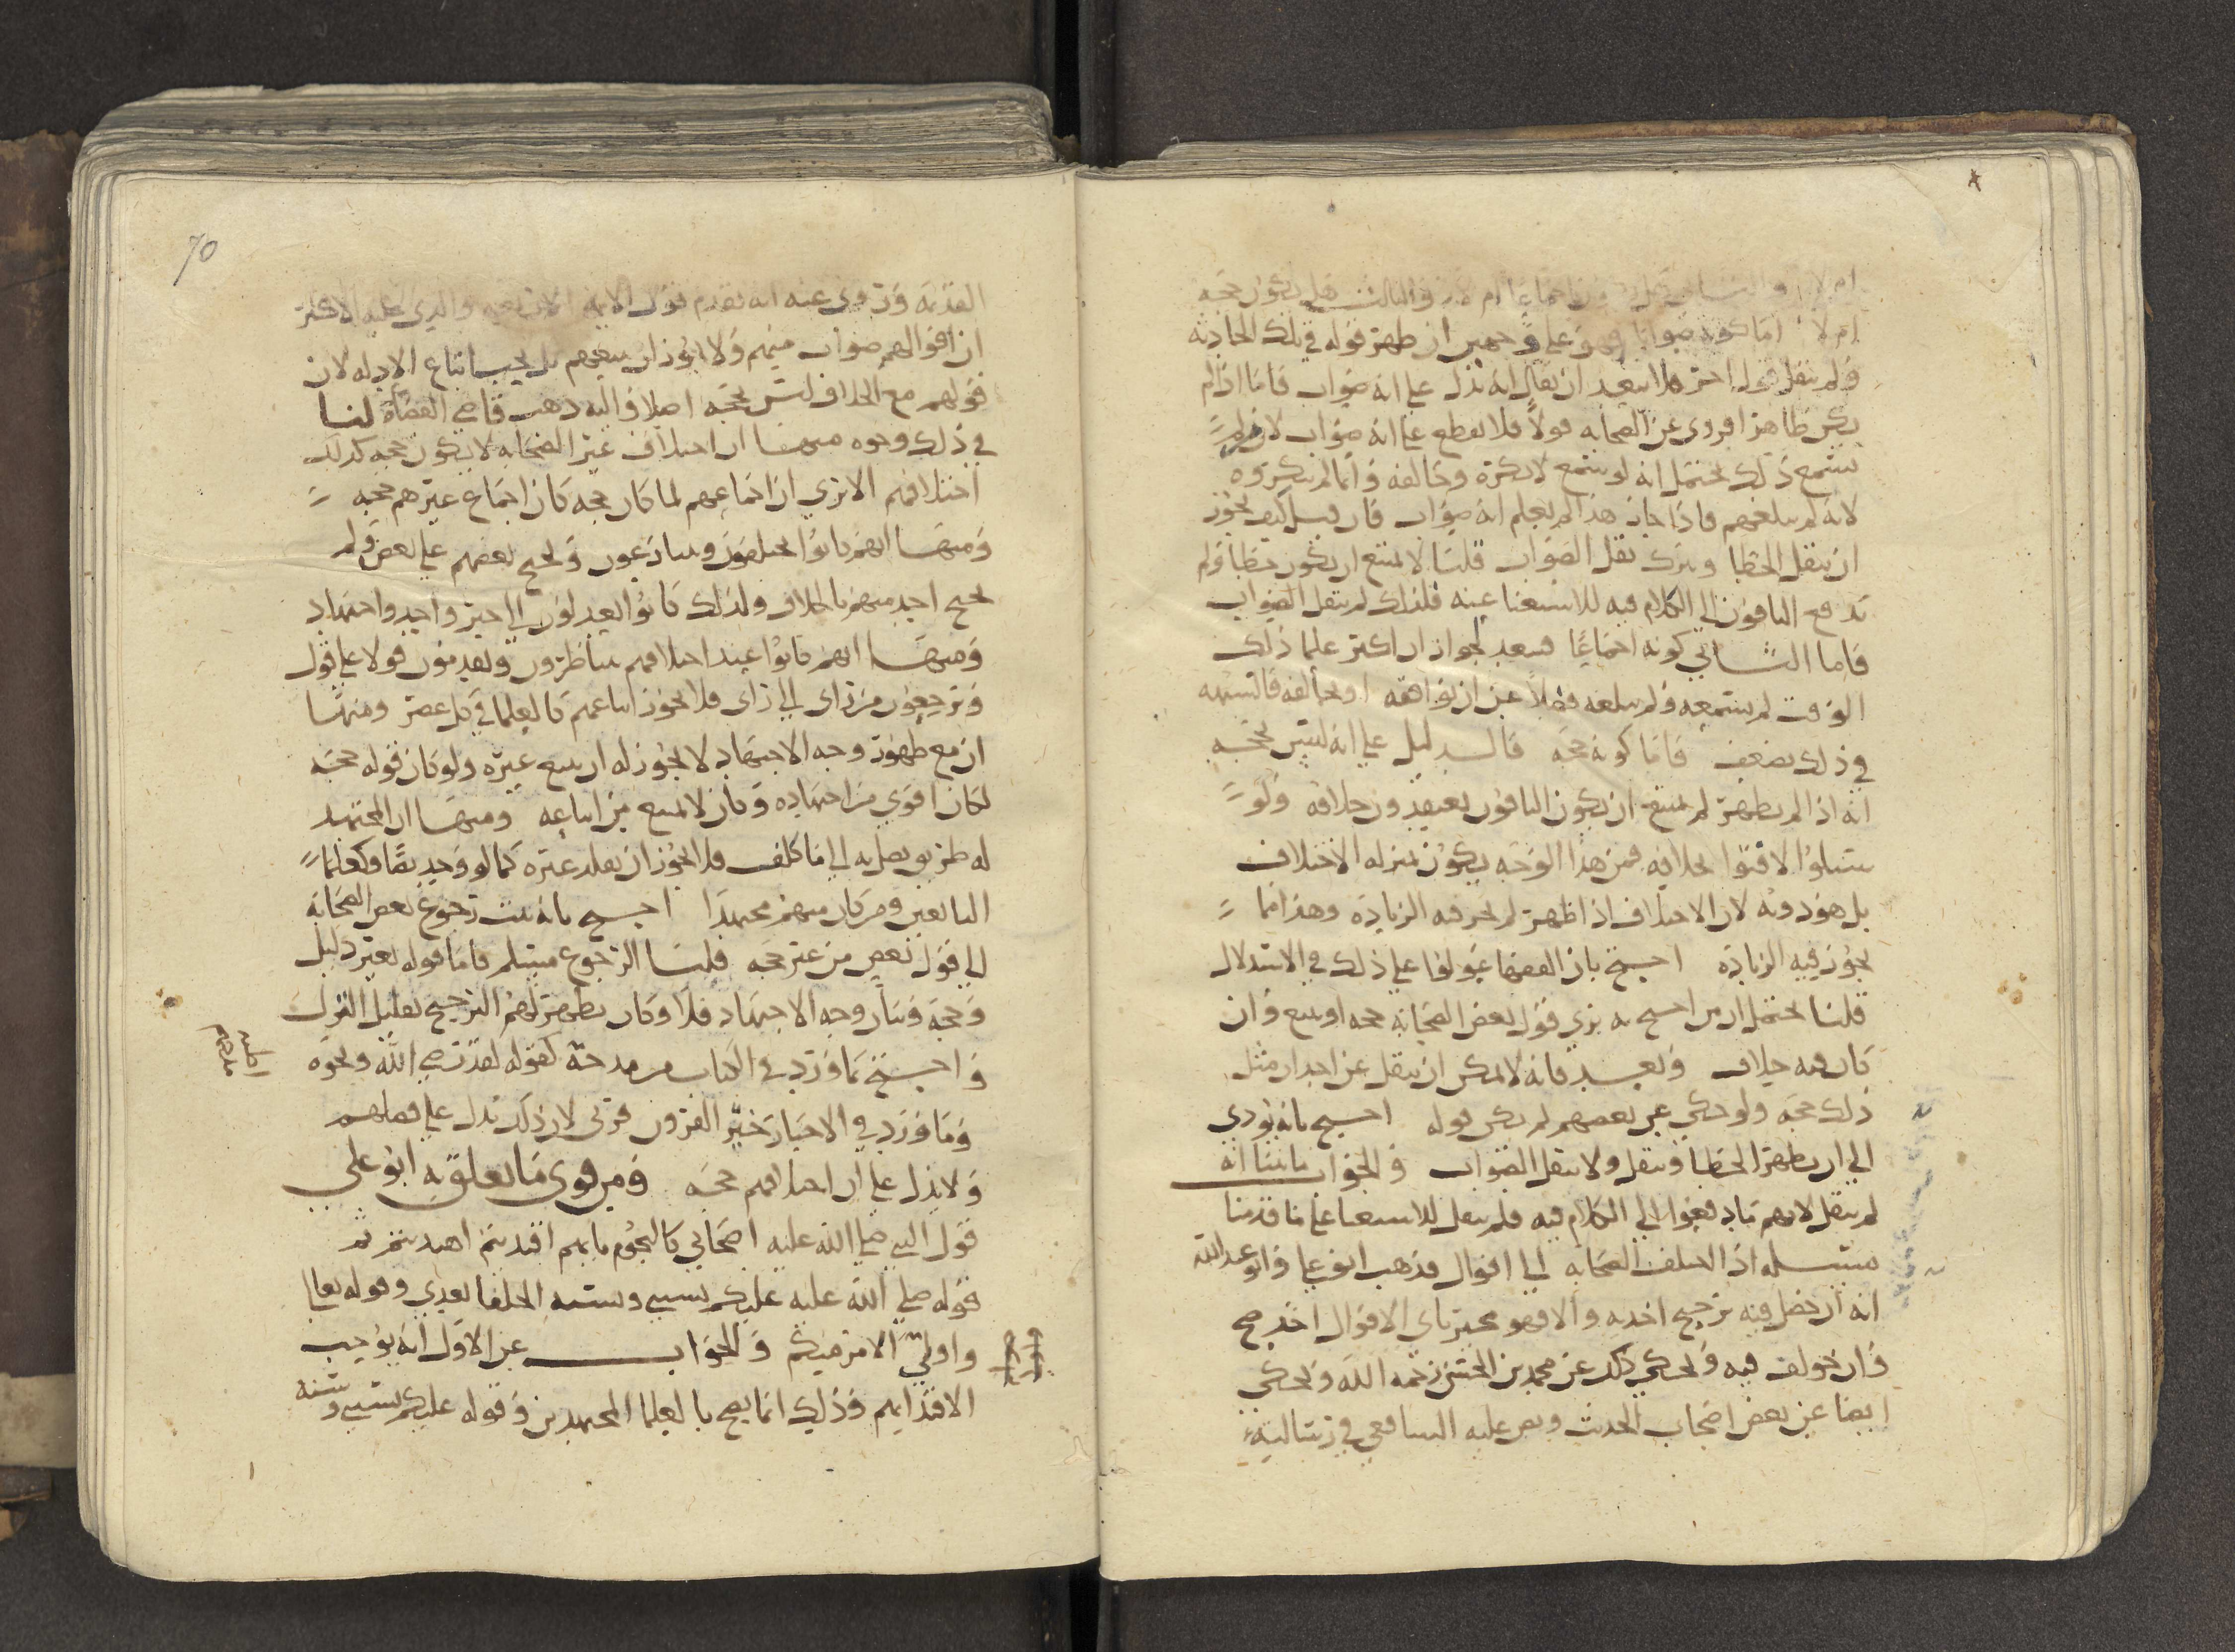 ام لا والثاني هل يكون اجماعا ام لا والثالث هل يكون حجه
ام لا اما كونه صوابا فهو على وجهين ان ظهر قوله في تلك الحادثه
ولم ينقل قول اخر فلا يبعد ان يقال انه يدل على انه صواب فاما اذا لم
يكن ظاهرا فروى عن الصحابه قولا فلا نقطع على انه صواب لان من لم
يسمع ذلك يحتمل انه لو سمع لانكره وخالفه وانما لم ينكروه
لانه لم يبلغهم فاذا جاز هذا لم يعلم انه صواب فان قيل كيف يجوز
ان ينقل الخطا ويترك نقل الصواب قلنا لا يمتنع ان يكون خطا ولم
تدفع الباقون الى الكلام فيه للاستغنا عنه فلذلك لم ينقل الصواب
فاما الثاني كونه اجماعا فبعد لجواز ان اكثر علما ذلك
الوقت لم يسمعه ولم يبلغه فضلا عن ان يوافقه او يخالفه فالشبهه
في ذلك يضعف فاما كونه حجه فالدليل على انه ليس بحجه
انه اذا لم يظهر لم يمتنع ان يكون الباقون يعتقدون خلافه ولو
سئلوا لافتوا بخلافه فمن هذا الوجه يكون بمنزله الاختلاف
بل هو دونه لان الاختلاف اذا ظهر لم يجز فيه الزياده وهذا مما
يجوز فيه الزياده احتج بان الفقها عولوا على ذلك في الاستدلال
قلنا يحتمل ان من احتج به يرى قول بعض الصحابه حجه اوسع وان
كان فيه خلاف وبعد فانه لا يمكن ان ينقل عن احد ان مثل
ذلك حجه ولو حكي عن بعضهم لم يكن قوله احتج بانه يؤدي
الى ان يظهر الخطا وينقل ولا ينقل الصواب والجواب ما بينا انه
لم ينقل لانهم ما دفعوا الى الكلام فيه فلم ينقل للاستغنا على ما قدمنا
مسئله اذا اختلف الصحابه الى اقوال فذهب ابو علي وابو عبدالله
انه ان حصل فيه ترجيح اخذ به والا فهو مخير باي الاقوال اخذ صح
وان خولف فيه ويحكى ذلك عن محمد بن الحسن رحمه الله ويحكى
ايضا عن بعض اصحاب الحديث ونص عليه الشافعي في رسالته
70
القديمه وروى عنه انه يقدم قول الايمه الاربعه والذي عليه الاكثر
ان اقوالهم صواب منهم ولا يجوز ان يتبعهم بل يجب اتباع الادله لان
قولهم مع الخلاف ليس بحجه اصلا واليه ذهب قاضي القضاه لنا
في ذلك وجوه منها ان اختلاف غير الصحابه لا يكون حجه كذلك
اختلافهم الا ترى ان اجماعهم لما كان حجه كان اجماع غيرهم حجه
ومنها انهم كانوا يختلفون ويتنازعون ويحتج بعضهم على بعض ولم
يحتج احد منهم بالخلاف ولذلك كانوا يعدلون الى خبر واحد واجتهاد
ومنها انهم كانوا عند اختلافهم يتناظرون ويقدمون قولا على قول
ويرجعون من راى الى راى فلا يجوز اتباعهم كالعلما في كل عصر ومنها
ان مع ظهور وجه الاجتهاد لا يجوز له ان يتبع غيره ولو كان قوله حجه
لكان اقوى من اجتهاده وكان لا يمنع من اتباعه ومنها ان المجتهد
له طريق يصل به الى ما كلف فلا يجوز ان يقلد غيره كما لو وجد نصا وكعلما
التابعين ومن كان منهم مجتهدا احتج بانه ثبت رجوع بعض الصحابه
الى قول بعض من غير حجه قلنا الرجوع مسلم فاما قوله بغير دليل
وحجه وبيان وجه الاجتهاد فلا وكان يظهر لهم الترجيح بقليل القول
واحتج بما ورد في الكتاب من مدحه كقوله لقد رضي الله ونحوه
وما ورد في الاخبار خير القرون قرني لان ذلك يدل على فضلهم
ولا يدل على ان اختلافهم حجه ومن قوى ما تعلق به ابو علي
قول النبي صلى الله عليه اصحابي كالنجوم بايهم اقتديتم اهتديتم ثم
قوله صلى الله عليه عليكم بسنتي وسنه الخلفا بعدي وقوله تعالى
واولي الامر منكم والجواب عن الاول انه يوجب
الاقتدا بهم وذلك انما يصح بالعلما المجتهدين وقوله عليكم بسنتي وسنه